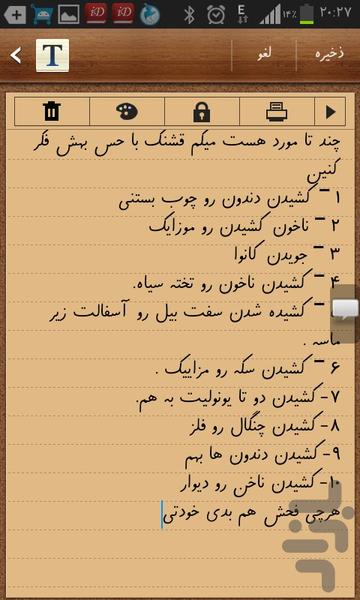 ۲۰:۲۷
۱۴٪
E
iD
iD
T
لغو
ذخیره
چند تا مورد هست میگم قشنگ با حس بهش فکر
کنین
۱ - کشیدن دندون رو چوب بستنی
۲ - ناخون کشیدن رو موزایک
۳ - جویدن کانوا
۴ - کشیدن ناخون رو تخته سیاه.
- کشیده شدن سفت بیل رو آسفالت زیر
ماسه .
۶ - کشیدن سکه رو مزاییک .
۷-کشیدن دو تا یونولیت به هم.
۸-کشیدن چنگال رو فلز
۹-کشیدن دندون ها بهم
۱۰-کشیدن ناخن رو دیوار
هرچی فحش هم بدی خودتی
بازار